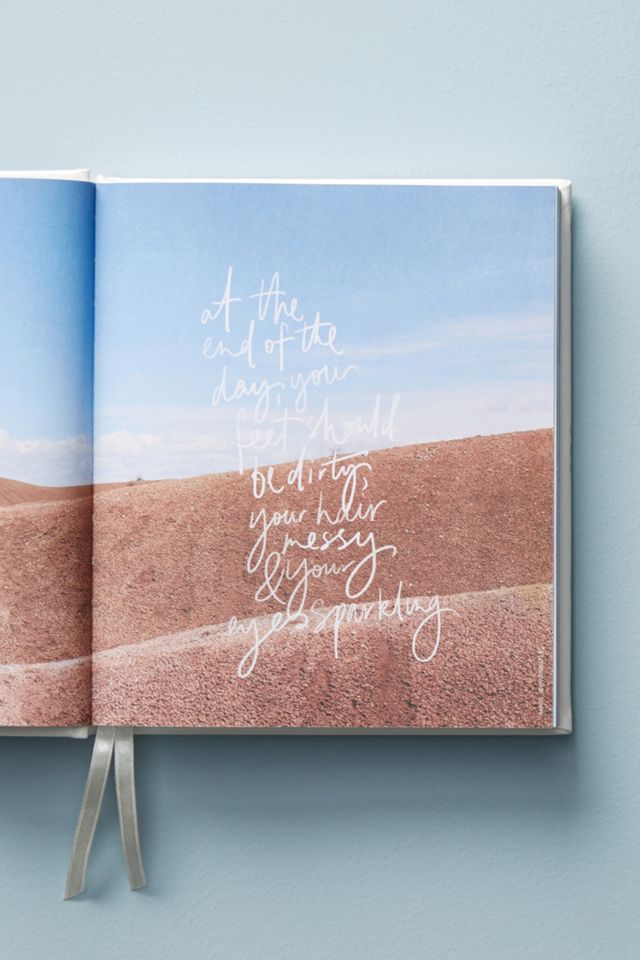 at the
end of the
day, your
feet should
be dirty,
your hair
messy
& your
eyes sparkling